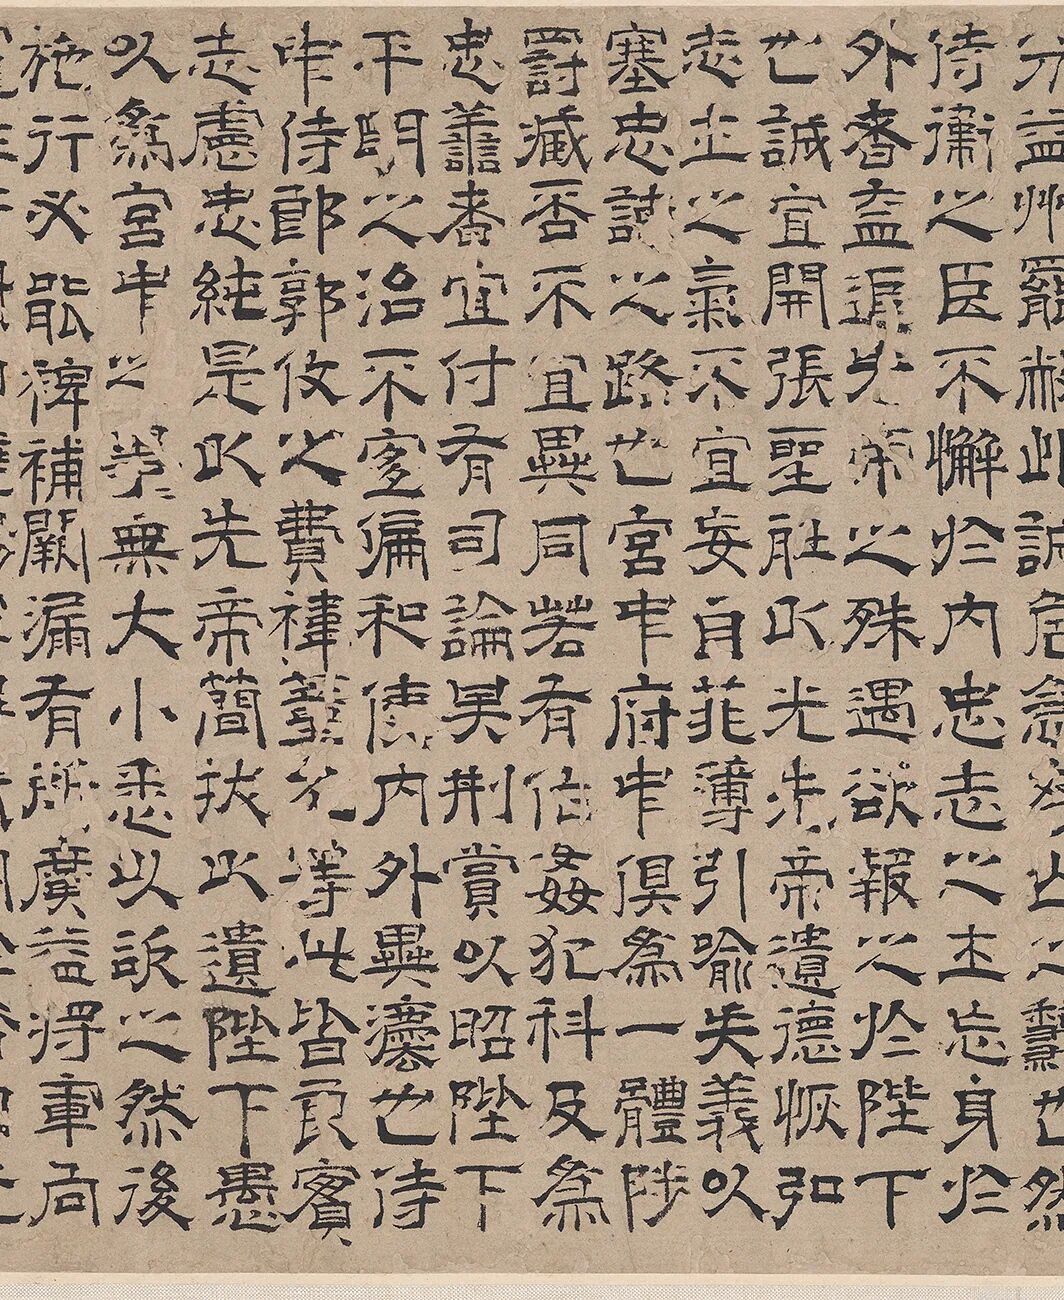 分益州罷弊此誠危急存亡之秋也然
侍衛之臣不懈於內忠志之士忘身於
外者蓋追先帝之殊遇欲報之於陛下
也誠宜開張聖聽以光先帝遺德恢弘
志士之氣不宜妄自菲薄引喻失義以
塞忠諫之路也宮中府中俱為一體陟
罰臧否不宜異同若有作姦犯科及為
忠善者宜付有司論其刑賞以昭陛下
平明之治不宜偏私使內外異灋也侍
中侍郎郭攸之費禕董允等此皆良實
志慮忠純是以先帝簡拔以遺陛下愚
以為宮中之事無大小悉以訴之然後
施行必能裨補闕漏有所廣益將軍向